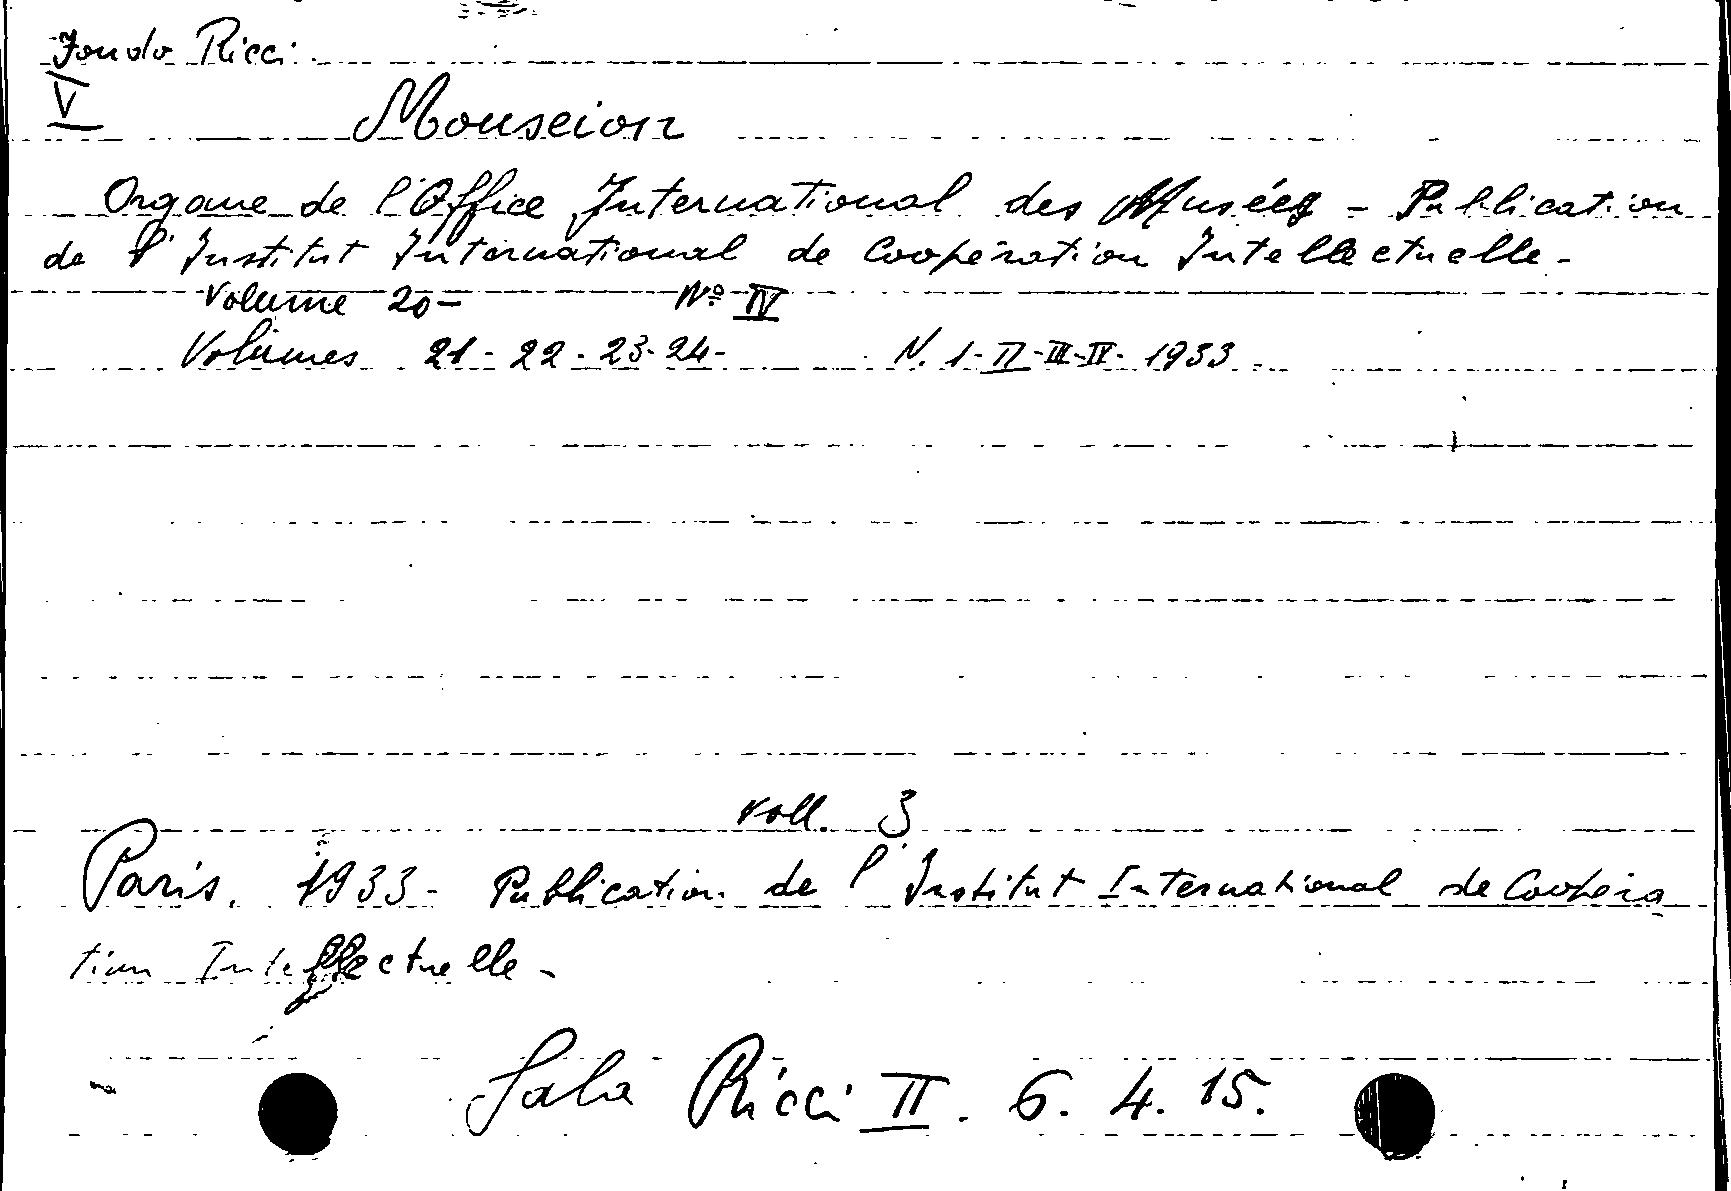 Fondo Ricci
V
Mouseion
Organe de l'Office International des Musées - Publication
de l'Institut International de Coopération Intellectuelle -
Volume 20 - Nº IV
Volumes 21 - 22 - 23 - 24 - N. 1 - II - III - IV - 1933
voll. 3
Paris, 1933 - Publication de l'Institut International de Coopéra
tion Intellectuelle -
Sala Ricci II. 6. 4. 15.